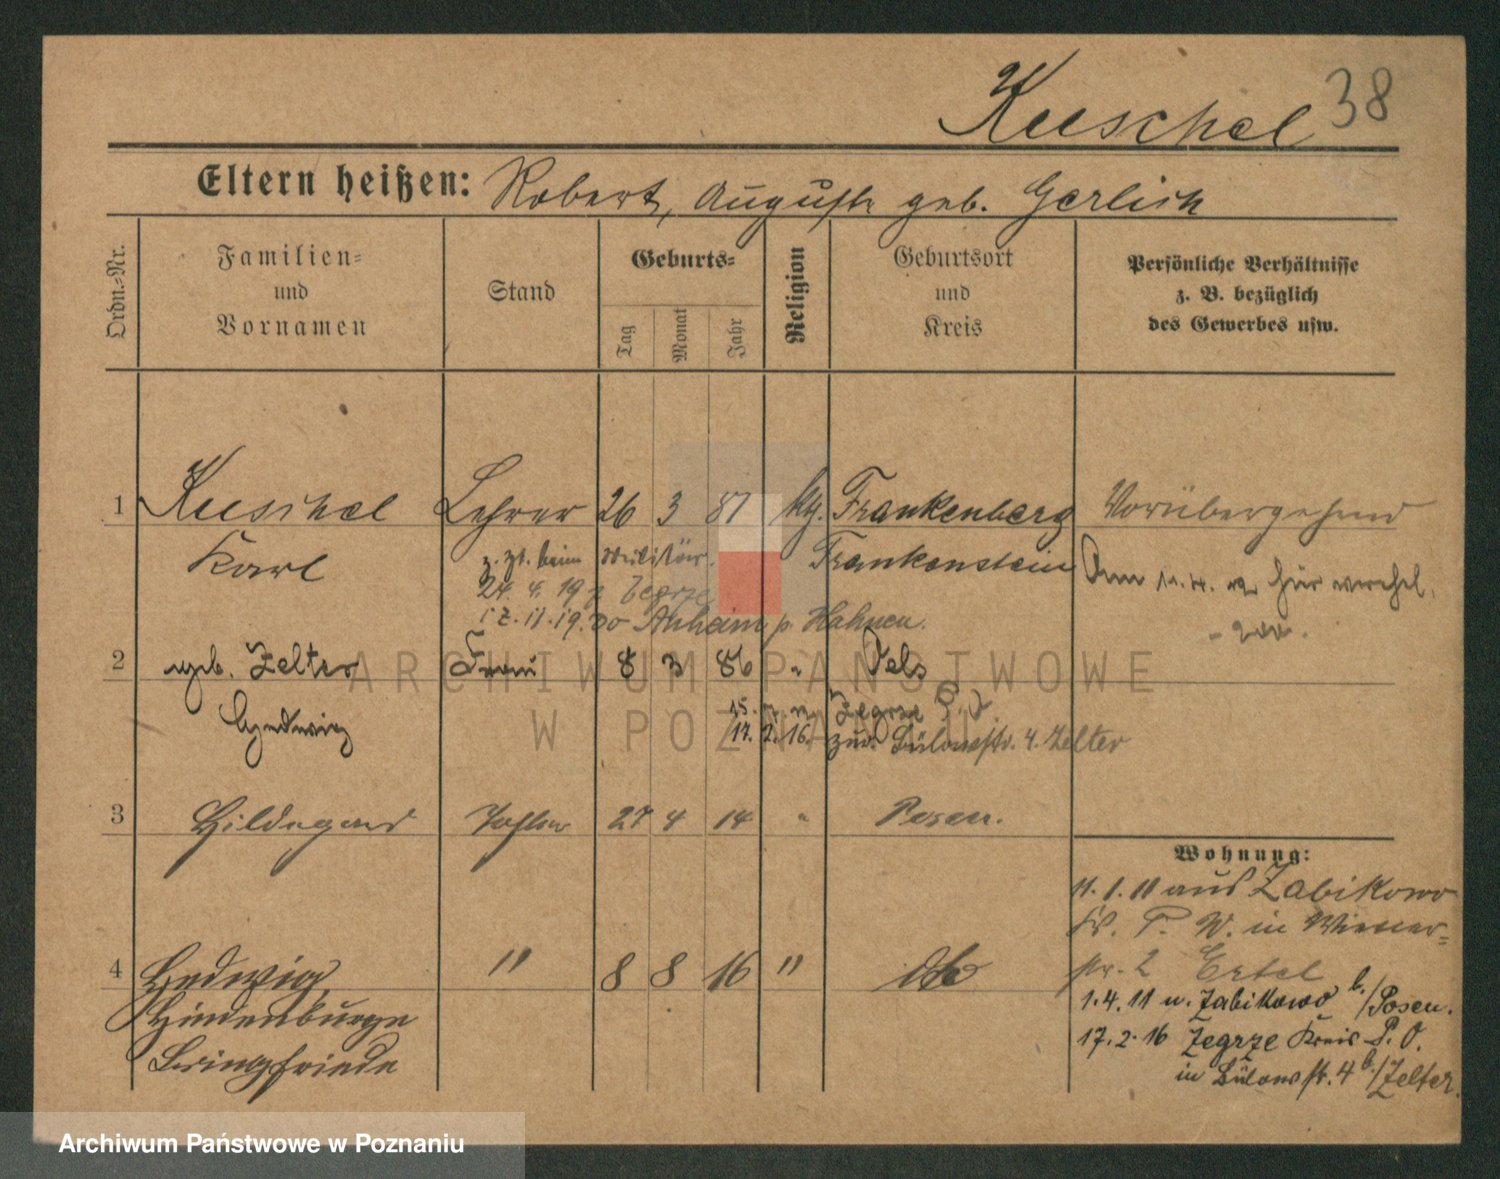 Keeschel 38
Eltern heißen: Robert, Auguste geb. Gerlich
Ordn.-Nr.
Familien-
und
Vornamen
Stand
Geburts-
Tag
Monat
Jahr
Religion
Geburtsort
und
Kreis
Persönliche Verhältnisse
z. B. bezüglich
des Gewerbes usw.
1 Keeschel Lehrer 26 3 81 ktg. Frankenberg Vorübergehend
Karl z. Zt. beim Militär. Frankenstein
24. 4. 19 Zegrze
17. 11. 19. Anheim p. Hahnen.
2 geb. Zelter Frau 8 3 86 " Oels
Hedwig 15. Zegrze P. O
17. 2. 16. zur. Bülowstr. 4. Zelter
3 Hildegard Tochter 27 4 14 " Posen.
4 Hedwig " 8 8 16 " do
Hindenburga
Bringfriede
Wohnung:
11. 1. 11 aus Zabikowo
Kr. P. W. in Wiesen-
str. 2 Ertel
1. 4. 11 n. Zabikowo b./Posen.
17. 2. 16 Zegrze Kreis P. O.
in Bülowstr. 4 b./Zelter.
ARCHIWUM PAŃSTWOWE
W POZNANIU
Archiwum Państwowe w Poznaniu